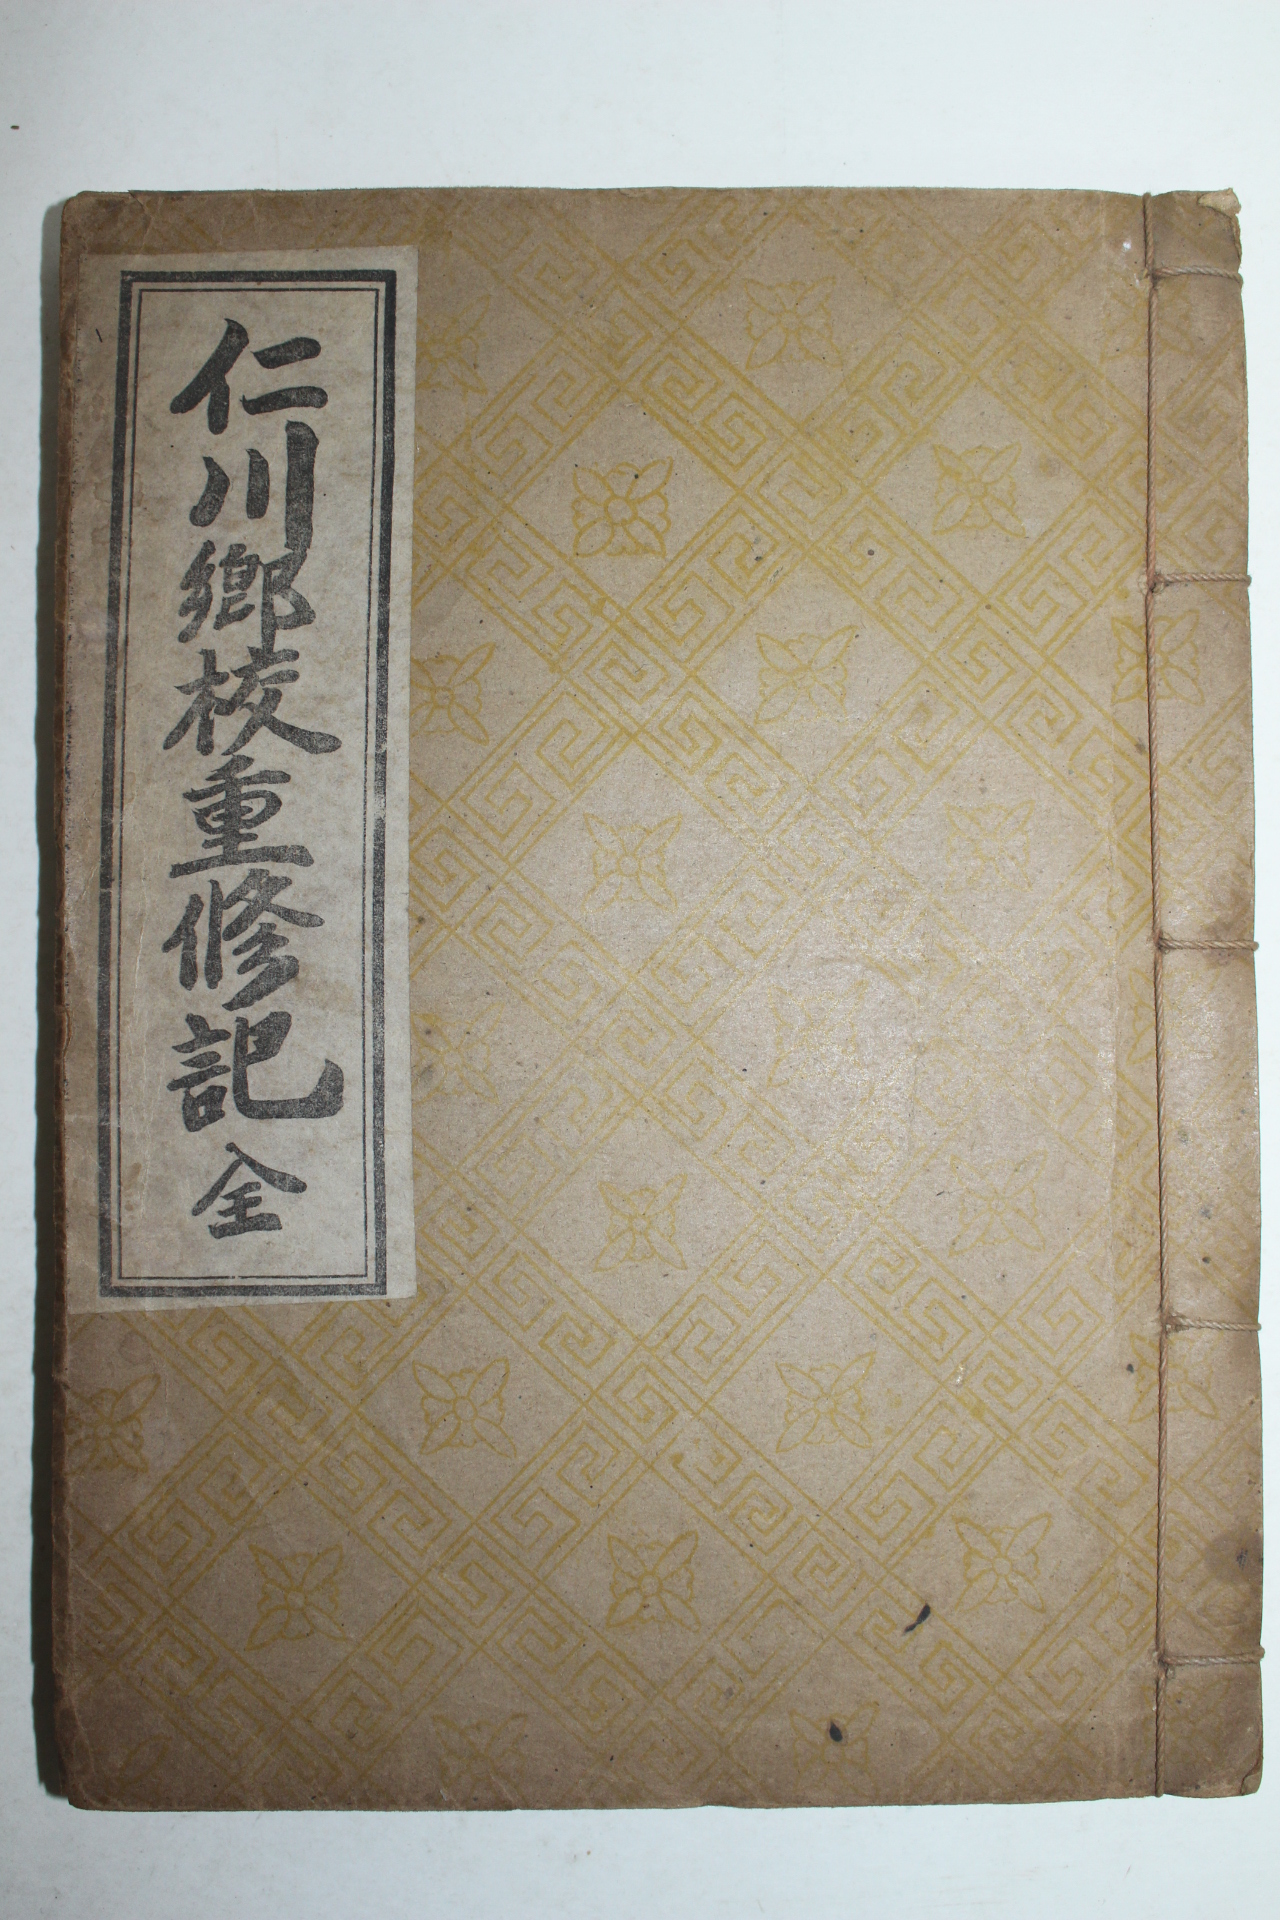 仁川鄕校重修記 全